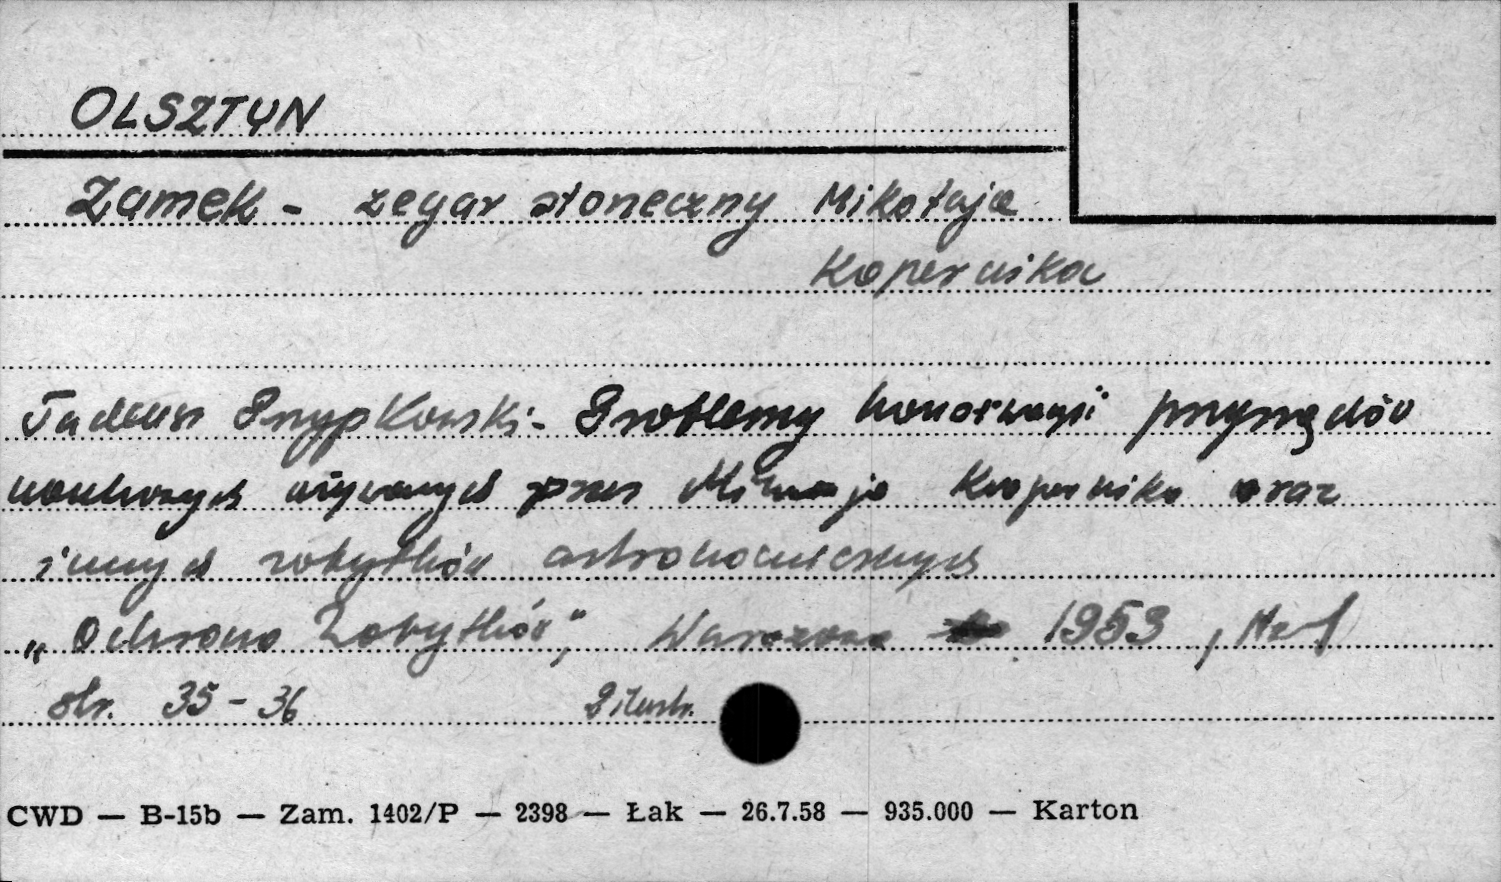 OLSZTYN
Zamek - zegar słoneczny Mikołaja
Kopernika
Tadeusz Przypkowski - Problemy konserwacji przyrządów
naukowych używanych przez Mikołaja Kopernika oraz
innych zabytków astronomicznych
„Ochrona Zabytków", Warszawa 1953, Nr 1
str. 35-36 2 ilustr.
CWD — B-15b — Zam. 1402/P — 2398 — Łak — 26.7.58 — 935.000 — Karton